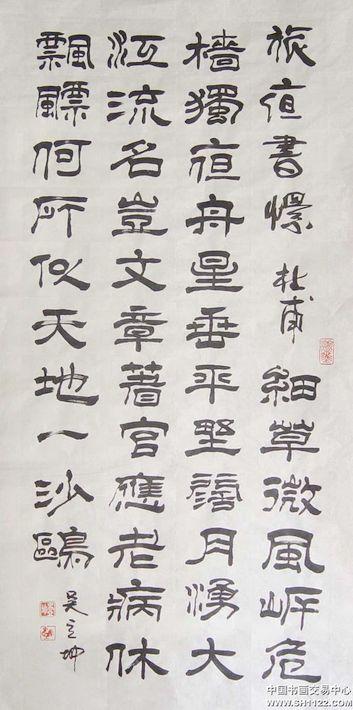 旅夜書懷 杜甫 細草微風岸危
檣獨夜舟星垂平野闊月湧大
江流名豈文章著官應老病休
飄飄何所似天地一沙鷗
吴立坤
中国书画交易中心
www.SH1122.com